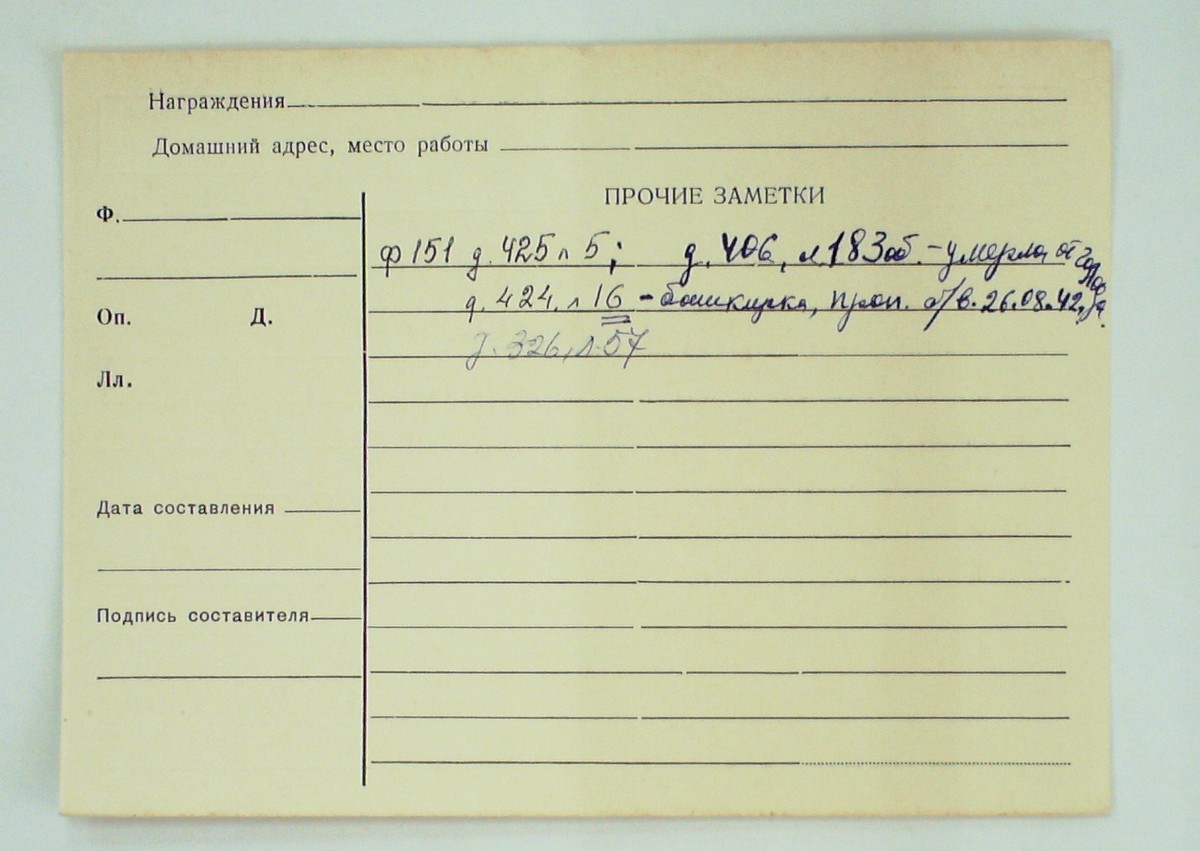 Награждения
Домашний адрес, место работы
ПРОЧИЕ ЗАМЕТКИ
Ф.
ф 151 д. 425 л 5; д. 406, л 183 об. - умерла от голода.
д. 424, л 16 - башкирка, проп. б/в. 26.08.42,
д. 326, л. 57
Оп. Д.
Лл.
Дата составления
Подпись составителя